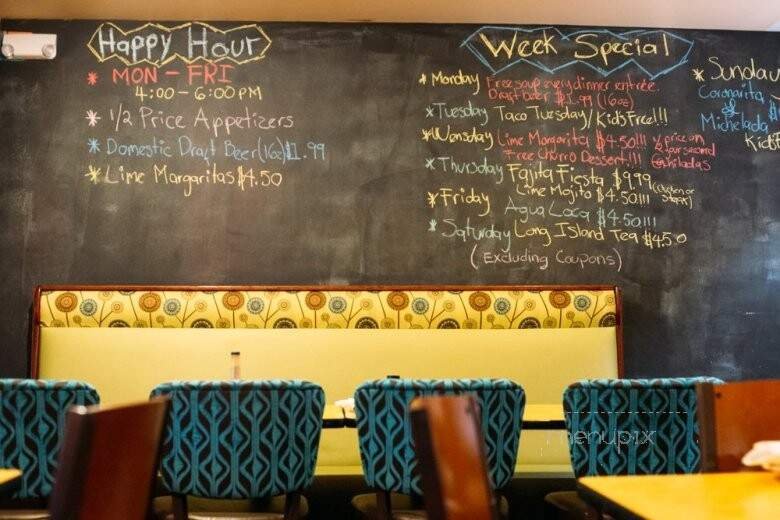 Happy Hour
* MON - FRI
4:00 - 6:00 PM
* 1/2 Price Appetizers
* Domestic Draft Beer (16oz) $1.99
* Lime Margaritas $4.50
Week Special
* Monday Free soup every dinner entrée.
Draft beer $1.99 (16oz)
* Tuesday Taco Tuesday/Kid's Free!!!
* Wensday Lime Margarita $4.50!!! ½ price on
Free Churro Dessert!!! your second
enchiladas
* Thursday Fajita Fiesta $9.99 (chicken or
steak)
Lime Mojito $4.50!!!
* Friday Agua Loca $4.50!!!
* Saturday Long Island Tea $4.50
(Excluding Coupons)
* Sunday
Coronarita
&
Michelada
Kid's
menupix